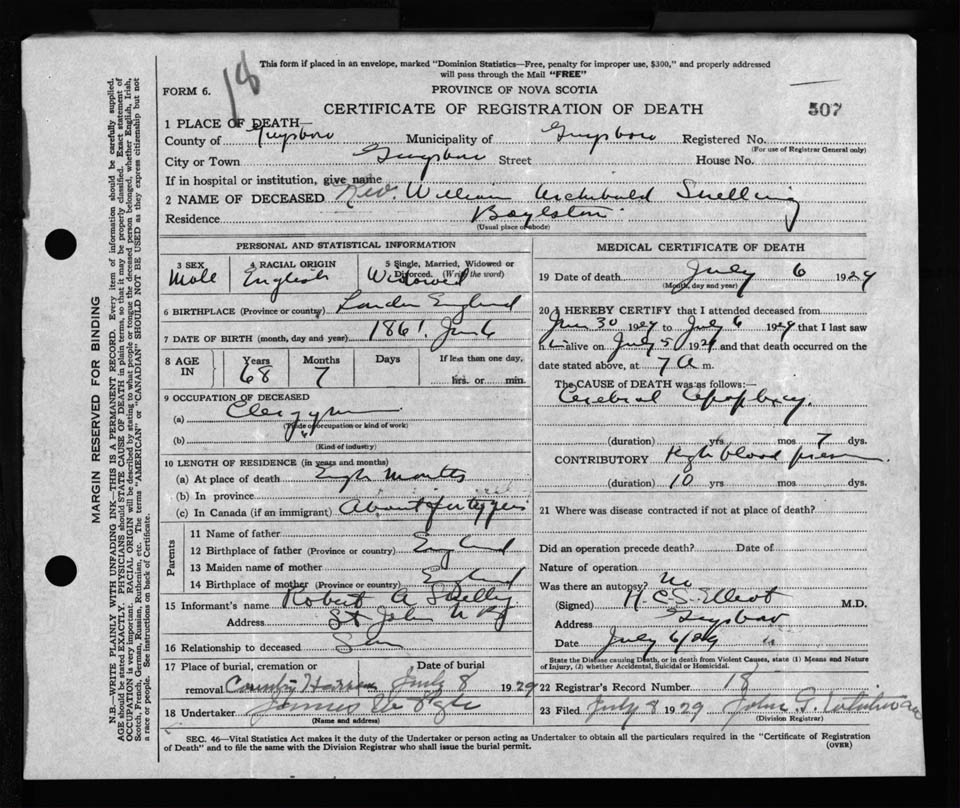 This form if placed in an envelope, marked "Dominion Statistics—Free, penalty for improper use, $300," and properly addressed
will pass through the Mail "FREE"
18
FORM 6.
PROVINCE OF NOVA SCOTIA
507
CERTIFICATE OF REGISTRATION OF DEATH
1 PLACE OF DEATH—
County of Guysboro Municipality of Guysboro Registered No.
(For use of Registrar General only)
City or Town Guysboro Street House No.
If in hospital or institution, give name
2 NAME OF DECEASED Rev. William Archibald Snelling
Residence Boylston
(Usual place of abode)
PERSONAL AND STATISTICAL INFORMATION
3 SEX 4 RACIAL ORIGIN 5 Single, Married, Widowed or
Divorced. (Write the word)
Male English Widowed
6 BIRTHPLACE (Province or country) London England
7 DATE OF BIRTH (month, day and year) 1861 Jan 6
8 AGE IN Years Months Days If less than one day,
68 7 hrs. or min.
9 OCCUPATION OF DECEASED
(a) Clergyman
(Trade or occupation or kind of work)
(b)
(Kind of industry)
10 LENGTH OF RESIDENCE (in years and months)
(a) At place of death months
(b) In province
(c) In Canada (if an immigrant) About
Parents
11 Name of father
12 Birthplace of father (Province or country) England
13 Maiden name of mother
14 Birthplace of mother (Province or country) England
15 Informant's name Robert A Snelling
Address St John
16 Relationship to deceased Son
17 Place of burial, cremation or Date of burial
removal July 8 1929
18 Undertaker James
(Name and address)
MEDICAL CERTIFICATE OF DEATH
19 Date of death July 6 1929
(Month, day and year)
20 I HEREBY CERTIFY that I attended deceased from
June 30 1929 to July 6 1929 that I last saw
h im alive on July 5 1929 and that death occurred on the
date stated above, at 7 A m.
The CAUSE of DEATH was as follows:—
Cerebral Apoplexy
(duration) yrs. mos 7 dys.
CONTRIBUTORY High blood pressure
(duration) 10 yrs mos dys.
21 Where was disease contracted if not at place of death?
Did an operation precede death? Date of
Nature of operation
Was there an autopsy? No
(Signed) H.C.S. Elliot M.D.
Address Guysboro
Date July 6/29
State the Disease causing Death, or in death from Violent Causes, state (1) Means and Nature
of Injury, (2) whether Accidental, Suicidal or Homicidal.
22 Registrar's Record Number 18
23 Filed July 8 1929 John G.
(Division Registrar)
SEC. 46—Vital Statistics Act makes it the duty of the Undertaker or person acting as Undertaker to obtain all the particulars required in the "Certificate of Registration
of Death" and to file the same with the Division Registrar who shall issue the burial permit. (OVER)
MARGIN RESERVED FOR BINDING
N.B.—WRITE PLAINLY WITH UNFADING INK—THIS IS A PERMANENT RECORD. Every item of information should be carefully supplied.
AGE should be stated EXACTLY. PHYSICIANS should STATE CAUSE OF DEATH in plain terms, so that it may be properly classified. Exact statement of
OCCUPATION is very important. RACIAL ORIGIN will be described by stating to what people or tongue the deceased person belonged, whether English, Irish,
Scotch, French, German, Russian, Ruthenian, etc. The terms "AMERICAN" or "CANADIAN" SHOULD NOT BE USED as they express citizenship but not
a race or people. See instructions on back of Certificate.